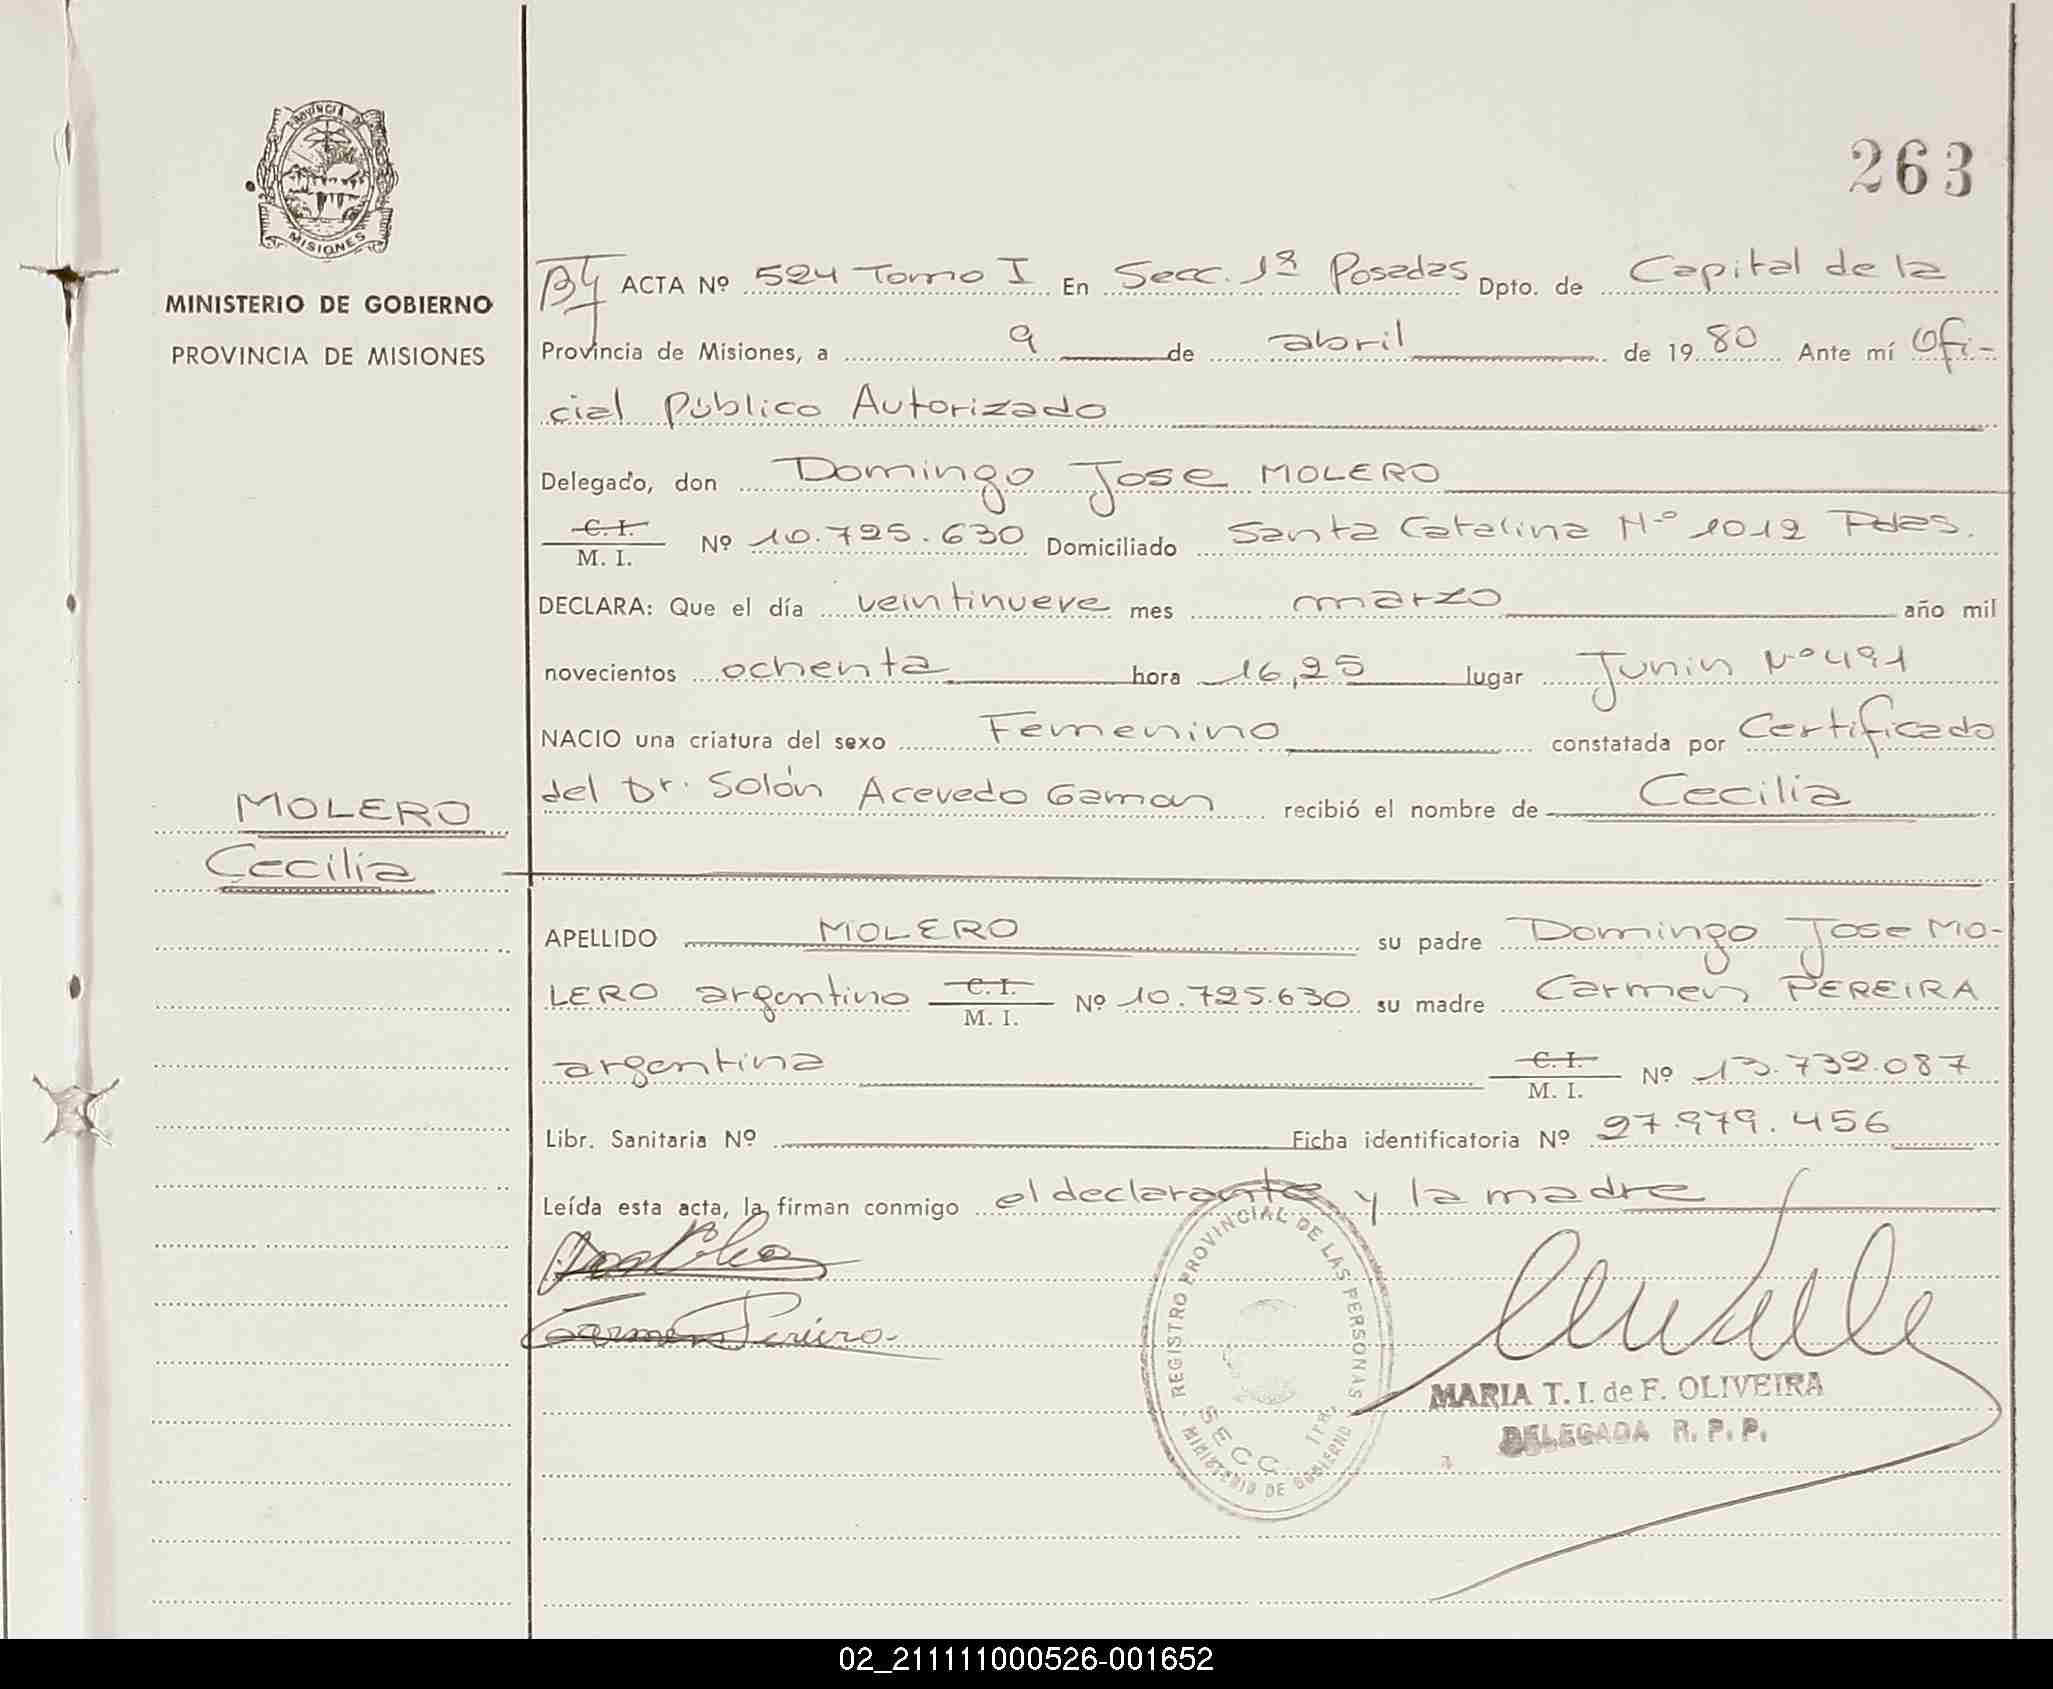 PROVINCIA DE
MISIONES
MINISTERIO DE GOBIERNO
PROVINCIA DE MISIONES
MOLERO
Cecilia
263
ACTA Nº 524 Tomo I En Secc. 1ª Posadas Dpto. de Capital de la
Provincia de Misiones, a 9 de abril de 1980 Ante mí Ofi-
cial Público Autorizado
Delegado, don Domingo Jose MOLERO
C. I.
M. I. Nº 10.725.630 Domiciliado Santa Catalina Nº 1012 Pdas.
DECLARA: Que el día veintinueve mes marzo año mil
novecientos ochenta hora 16,25 lugar Junin Nº 491
NACIO una criatura del sexo Femenino constatada por Certificado
del Dr. Solón Acevedo Gaman recibió el nombre de Cecilia
APELLIDO MOLERO su padre Domingo Jose MO-
LERO argentino C. I. M. I. Nº 10.725.630 su madre Carmen PEREIRA
argentina C. I. M. I. Nº 13.732.087
Libr. Sanitaria Nº Ficha identificatoria Nº 27.979.456
Leída esta acta, la firman conmigo el declarante y la madre
Carmen Pereira
REGISTRO PROVINCIAL DE LAS PERSONAS
SECC. 1RA.
MINISTERIO DE GOBIERNO
MARIA T. I. de F. OLIVEIRA
DELEGADA R. P. P.
02_211111000526-001652